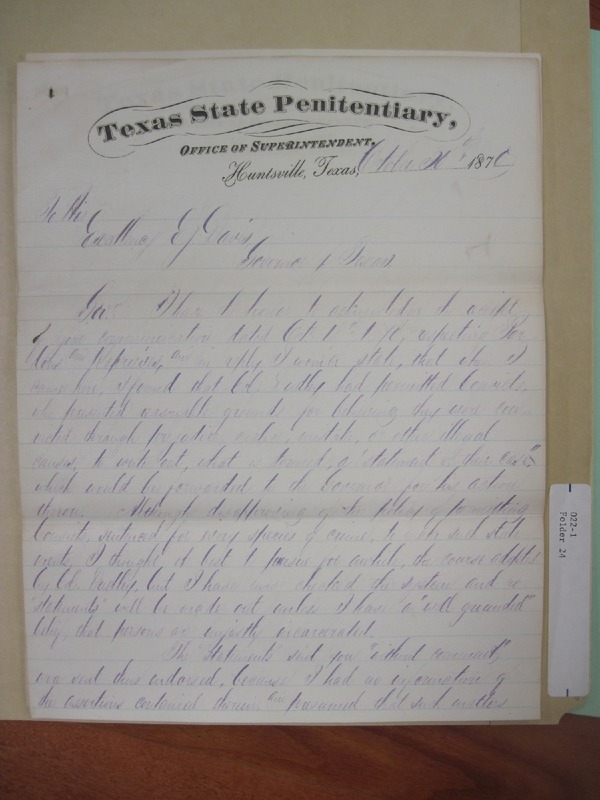 Texas State Penitentiary,
OFFICE OF SUPERINTENDENT,
Huntsville, Texas, 1870
To His
Excellency E J Davis
Governor of Texas
Sir I have the honor to acknowledge the receipt
of your communication dated Oct 1st 1870, respecting
and in reply I would state, that when I
came here, I found that Col. had permitted Convicts,
who presented reasonable grounds for believing they were
through prejudice, malice, or other illegal
causes, to write out, what is termed, a "statement of their case",
which would be forwarded to the Governor for his action
thereon. Although disapproving of the policy of permitting
Convicts, sentenced for every species of crime, to
I thought it best to pursue for awhile, the course adopted
by Col. but I have now checked the system and no
"statements" will be made out unless I have a "well grounded"
belief, that persons are unjustly incarcerated.
The "Statements" sent you "without comment",
were sent thus endorsed, because I had no of
the assertions contained therein and presumed that such matters
022-1
Folder 24